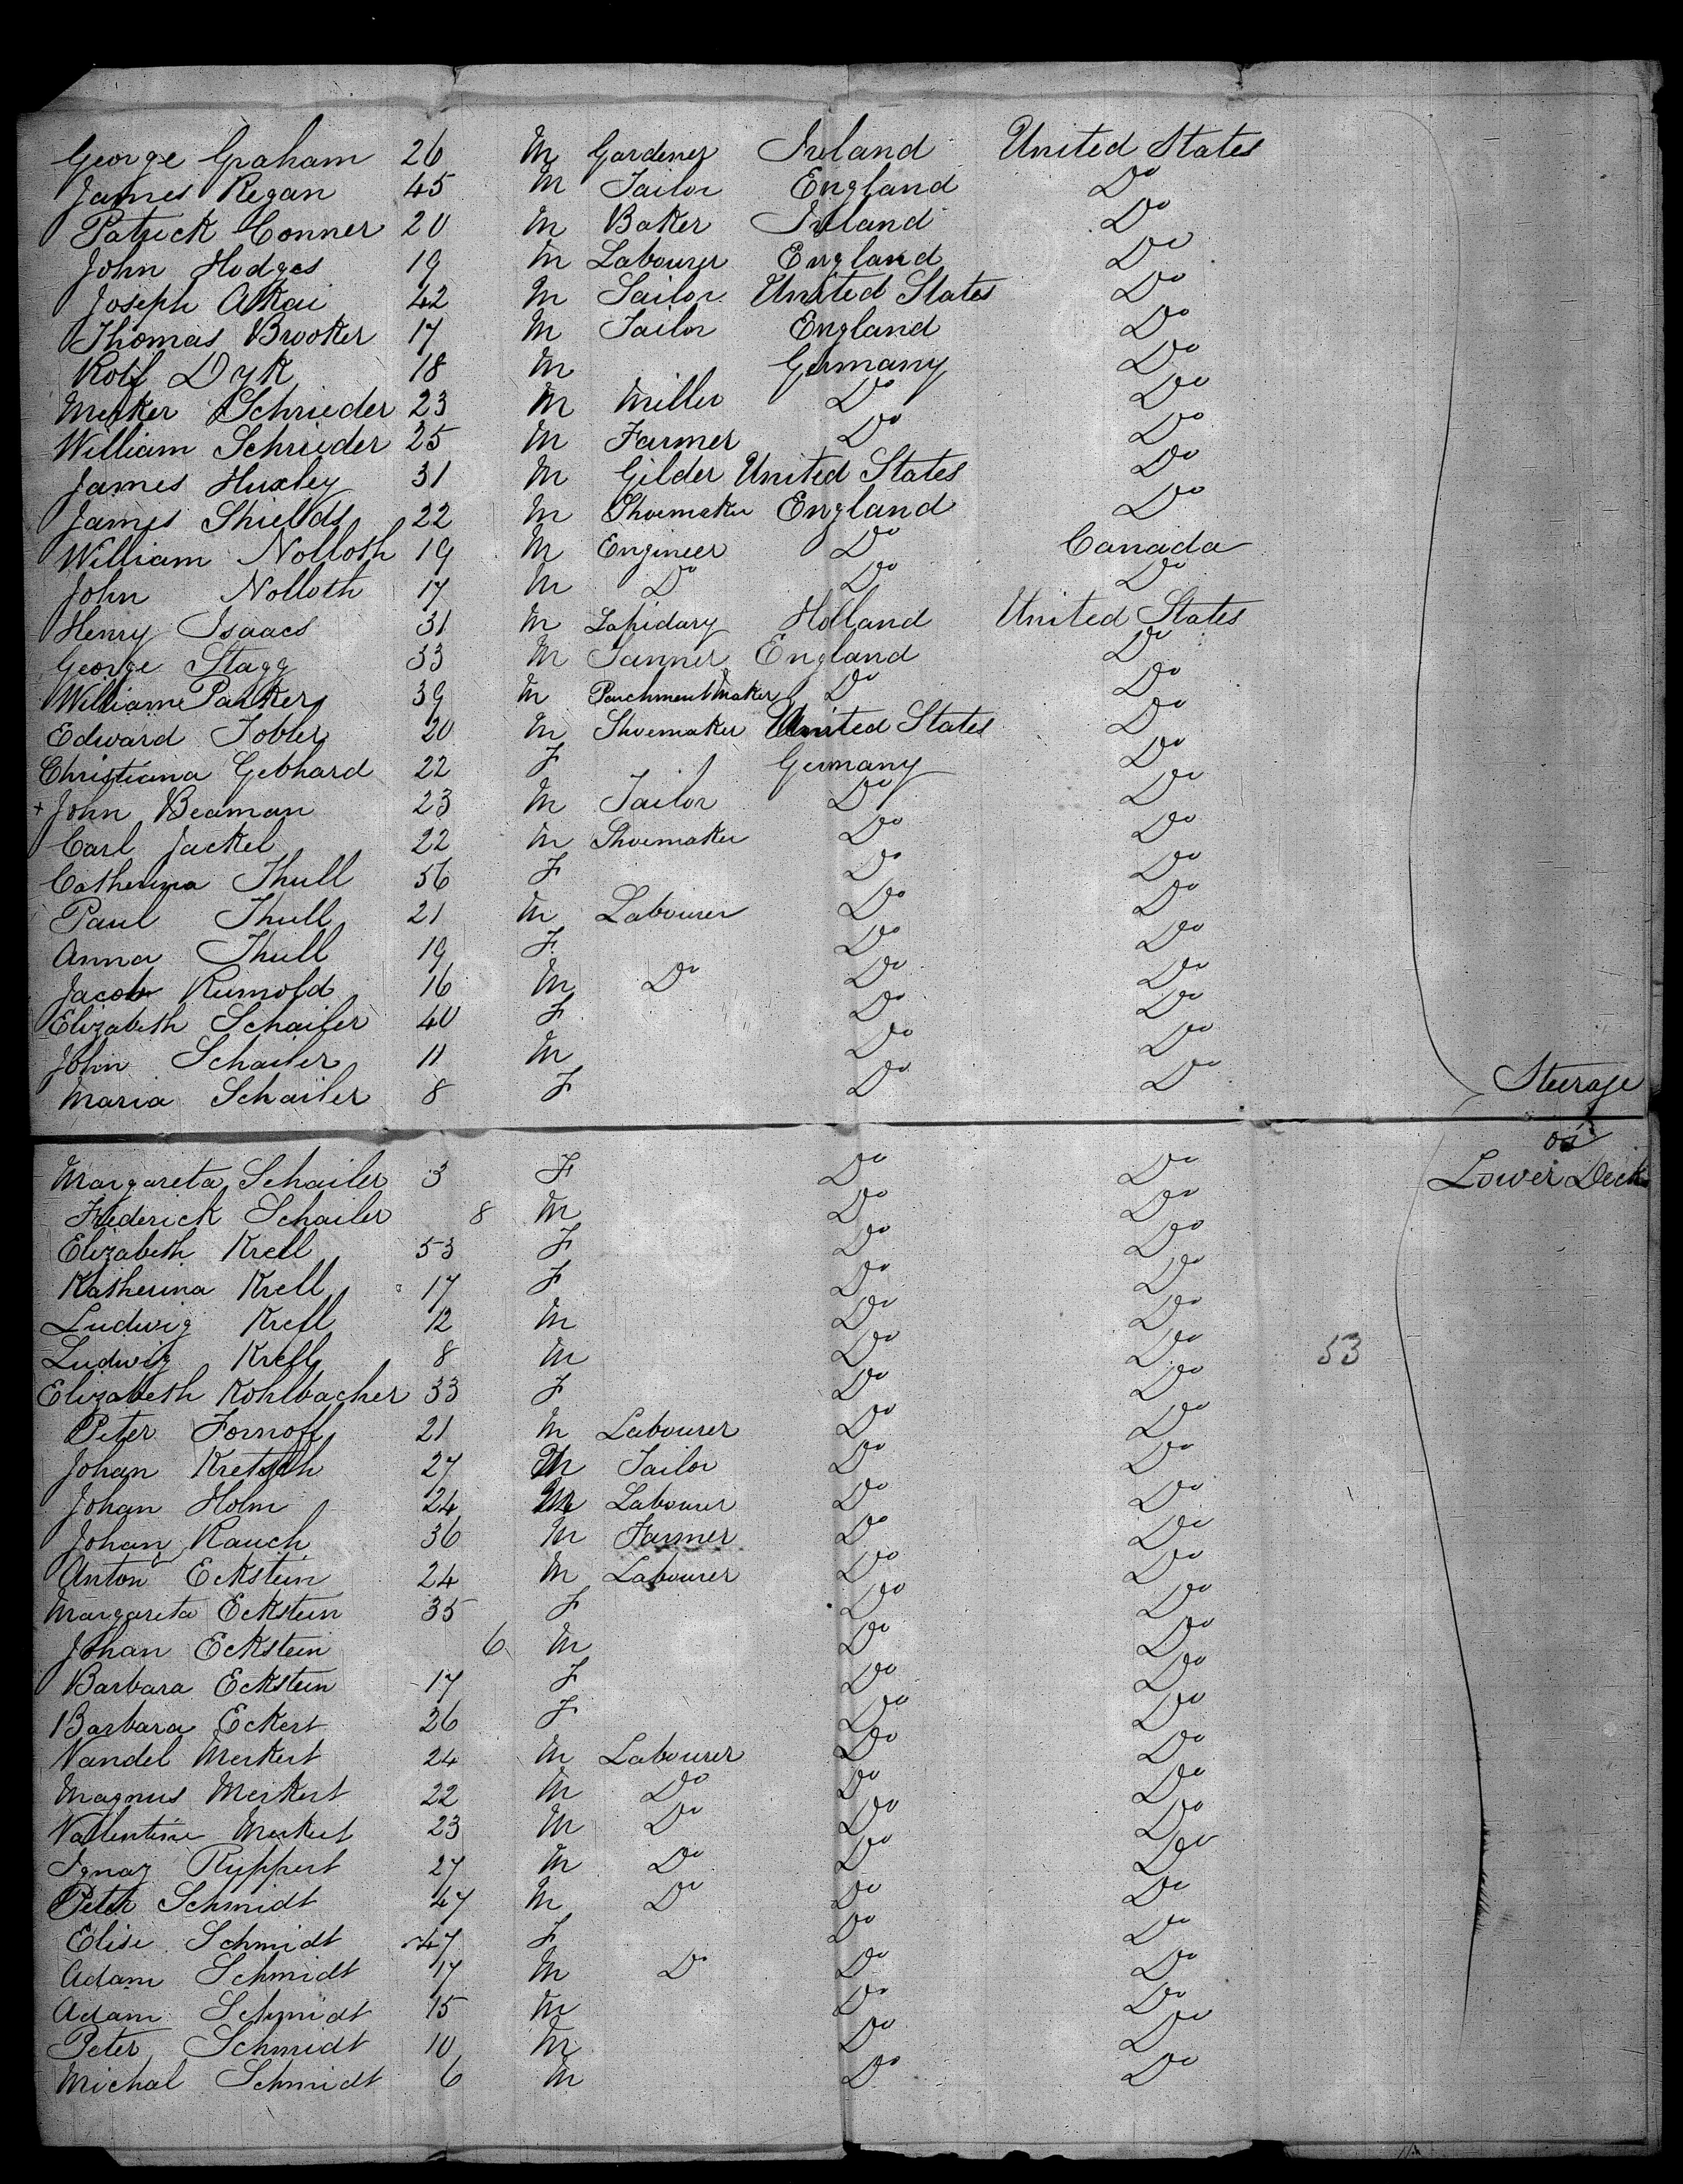 George Graham 26 M Gardener Ireland United States
James Regan 45 M Tailor England Do
Patrick Conner 20 M Baker Ireland Do
John Hodges 19 M Labourer England Do
Joseph Akai 42 M Sailor United States Do
Thomas Brooker 17 M Tailor England Do
Rolf Dyk 18 M Germany Do
Merker Schrieder 23 M Miller Do Do
William Schrieder 25 M Farmer Do Do
James Huxley 31 M Gilder United States Do
James Shields 22 M Shoemaker England Do
William Nolloth 19 M Engineer Do Canada
John Nolloth 17 M Do Do Do
Henry Isaacs 31 M Lapidary Holland United States
George Stagg 33 M Tanner England Do
William Parker 39 M Parchment Maker Do Do
Edward Tobler 20 M Shoemaker United States Do
Christiana Gebhard 22 F Germany Do
+ John Beaman 23 M Tailor Do Do
Carl Jackel 22 M Shoemaker Do Do
Catherina Thull 56 F Do Do
Paul Thull 21 M Labourer Do Do
Anna Thull 19 F Do Do
Jacob Rumold 16 M Do Do Do
Elizabeth Schailer 40 F Do Do
John Schailer 11 M Do Do
Maria Schailer 8 F Do Do
Steerage
or
Lower Deck
Margareta Schailer 3 F Do Do
Frederick Schailer 8 M Do Do
Elizabeth Krell 53 F Do Do
Katherina Krell 17 F Do Do
Ludwig Krell 12 M Do Do
Ludwig Krell 8 M Do Do 53
Elizabeth Kohlbacher 33 F Do Do
Peter Fornoff 21 M Labourer Do Do
Johan Kretsch 27 M Tailor Do Do
Johan Holm 24 M Labourer Do Do
Johan Rauch 36 M Farmer Do Do
Anton Eckstein 24 M Labourer Do Do
Margareta Eckstein 35 F Do Do
Johan Eckstein 6 M Do Do
Barbara Eckstein 17 F Do Do
Barbara Eckert 26 F Do Do
Vandel Merkert 24 M Labourer Do Do
Magnus Merkert 22 M Do Do Do
Vallentine Merkert 23 M Do Do Do
Ignaz Ruppert 27 M Do Do Do
Peter Schmidt 47 M Do Do Do
Elise Schmidt 47 F Do Do
Adam Schmidt 17 M Do Do Do
Adam Schmidt 15 M Do Do
Peter Schmidt 10 M Do Do
Michal Schmidt 6 M Do Do